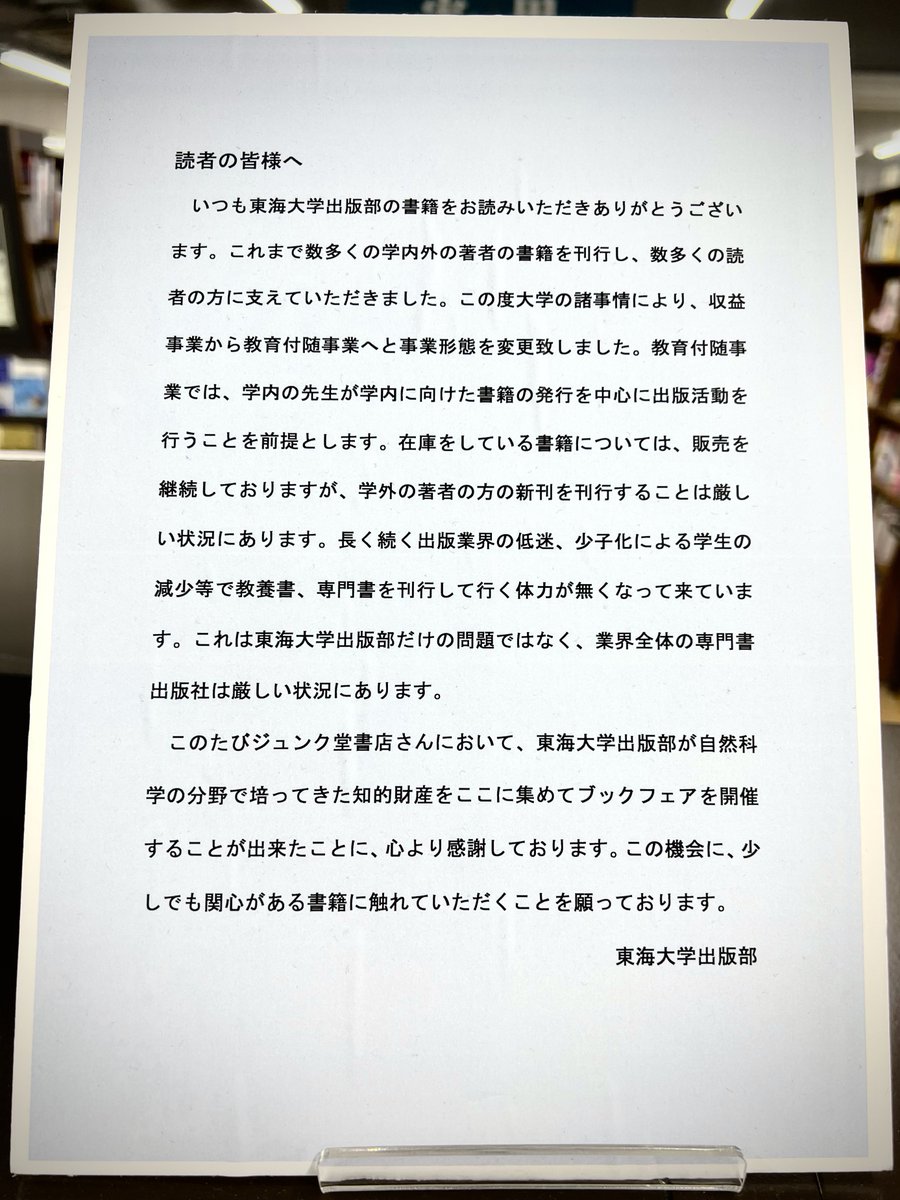 読者の皆様へ
いつも東海大学出版部の書籍をお読みいただきありがとうござい
ます。これまで数多くの学内外の著者の書籍を刊行し、数多くの読
者の方に支えていただきました。この度大学の諸事情により、収益
事業から教育付随事業へと事業形態を変更致しました。教育付随事
業では、学内の先生が学内に向けた書籍の発行を中心に出版活動を
行うことを前提とします。在庫をしている書籍については、販売を
継続しておりますが、学外の著者の方の新刊を刊行することは厳し
い状況にあります。長く続く出版業界の低迷、少子化による学生の
減少等で教養書、専門書を刊行して行く体力が無くなって来ていま
す。これは東海大学出版部だけの問題ではなく、業界全体の専門書
出版社は厳しい状況にあります。
このたびジュンク堂書店さんにおいて、東海大学出版部が自然科
学の分野で培ってきた知的財産をここに集めてブックフェアを開催
することが出来たことに、心より感謝しております。この機会に、少
しでも関心がある書籍に触れていただくことを願っております。
東海大学出版部